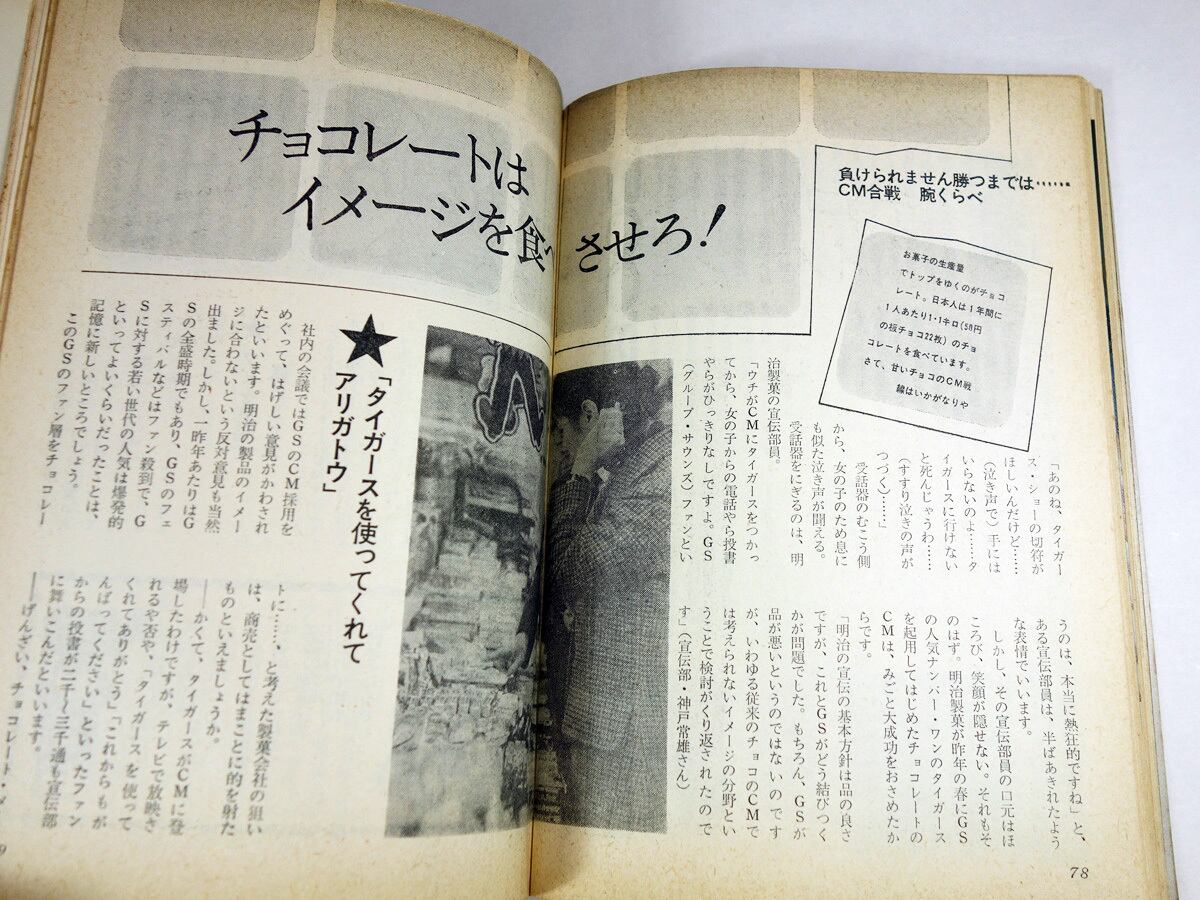 負けられません勝つまでは……
CM合戦 腕くらべ
チョコレートは
イメージを食べさせろ!
お菓子の生産量
でトップをゆくのがチョコ
レート。日本人は1年間に
1人あたり1・1キロ(50円
の板チョコ22枚)のチョ
コレートを食べています。
さて、甘いチョコのCM戦
線はいかがなりや
「あのね、タイガー
ス・ショーの切符が
ほしいんだけど……
(泣き声で)手には
いらないのよ……タ
イガースに行けない
と死んじゃうわ……
(すすり泣きの声が
つづく)……」
受話器のむこう側
から、女の子のため息に
も似た泣き声が聞える。
受話器をにぎるのは、明
治製菓の宣伝部員。
「ウチがCMにタイガースをつかっ
てから、女の子からの電話やら投書
やらがひっきりなしですよ。GS
(グループ・サウンズ)ファンとい
うのは、本当に熱狂的ですね」と、
ある宣伝部員は、半ばあきれたよう
な表情でいいます。
しかし、その宣伝部員の口元はほ
ころび、笑顔が隠せない。それもそ
のはず。明治製菓が昨年の春にGS
の人気ナンバー・ワンのタイガース
を起用してはじめたチョコレートの
CMは、みごと大成功をおさめたか
らです。
「明治の宣伝の基本方針は品の良さ
ですが、これとGSがどう結びつく
かが問題でした。もちろん、GSが
品が悪いというのではないのです
が、いわゆる従来のチョコのCMで
は考えられないイメージの分野とい
うことで検討がくり返されたので
す」(宣伝部・神戸常雄さん)
78
★「タイガースを使ってくれて
アリガトウ」
社内の会議ではGSのCM採用を
めぐって、はげしい意見がかわされ
たといいます。明治の製品のイメー
ジに合わないという反対意見も当然
出ました。しかし、一昨年あたりはG
Sの全盛時期でもあり、GSのフェ
スティバルなどはファン殺到で、G
Sに対する若い世代の人気は爆発的
といってよいくらいだったことは、
記憶に新しいところでしょう。
このGSのファン層をチョコレー
トに……、と考えた製菓会社の狙い
は、商売としてはまことに的を射た
ものといえましょうか。
――かくて、タイガースがCMに登
場したわけですが、テレビで放映さ
れるや否や、「タイガースを使って
くれてありがとう」「これからもが
んばってください」といったファン
からの投書が二千〜三千通も宣伝部
に舞いこんだといいます。
――げんざい、チョコレート・
9